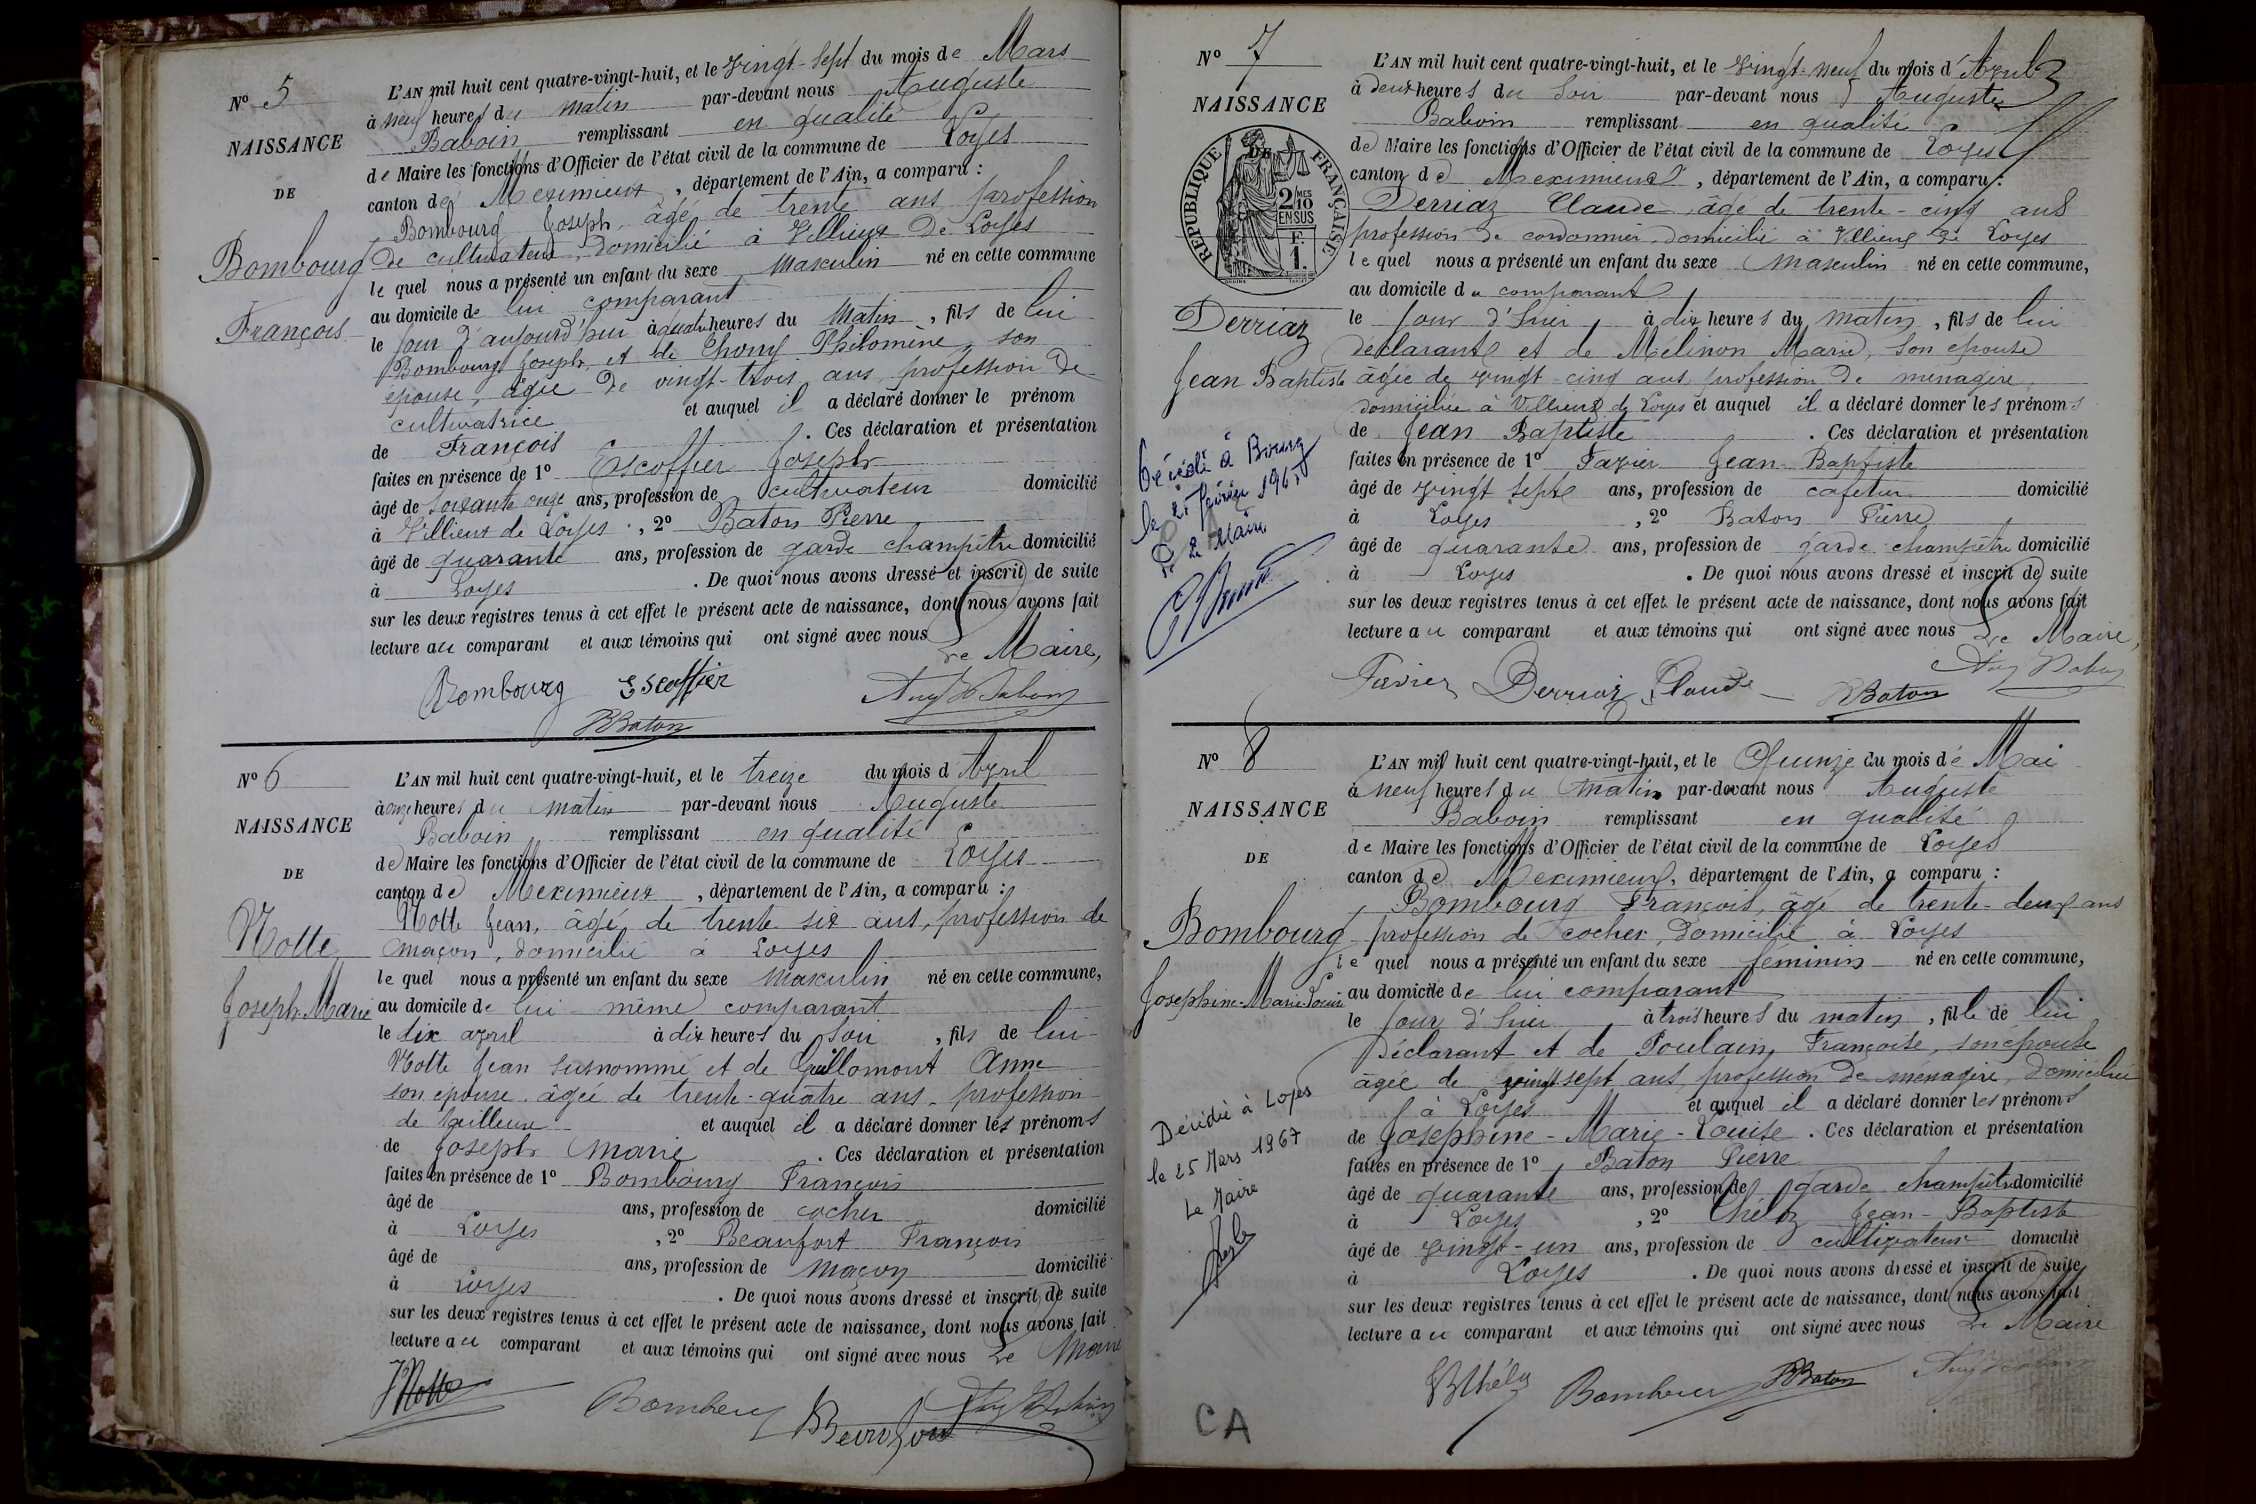 N° 5
NAISSANCE
DE
Bombourg
François
L'AN mil huit cent quatre-vingt-huit, et le vingt-sept du mois de Mars
à neuf heures du matin par-devant nous Auguste
Baboin remplissant en qualité
de Maire les fonctions d'Officier de l'état civil de la commune de Loyes
canton de Meximieux, département de l'Ain, a comparu :
Bombourg Joseph, âgé de trente ans profession
de cultivateur, domicilié à Villieux de Loyes
le quel nous a présenté un enfant du sexe Masculin né en cette commune
au domicile de lui comparant
le jour d'aujourd'hui à quatre heures du matin, fils de lui
Bombourg Joseph, et de Philomène, son
épouse, âgée de vingt-trois ans, profession de
cultivatrice et auquel il a déclaré donner le prénom
de François. Ces déclaration et présentation
faites en présence de 1° Escoffier Joseph
âgé de soixante onze ans, profession de cultivateur domicilié
à Villieux de Loyes, 2° Baton Pierre
âgé de quarante ans, profession de garde champêtre domicilié
à Loyes. De quoi nous avons dressé et inscrit de suite
sur les deux registres tenus à cet effet le présent acte de naissance, dont nous avons fait
lecture au comparant et aux témoins qui ont signé avec nous
Le Maire,
Bombourg Escoffier
Baton
N° 6
NAISSANCE
DE
Notte
Joseph Marie
L'AN mil huit cent quatre-vingt-huit, et le treize du mois d'Avril
à onze heures du matin par-devant nous Auguste
Baboin remplissant en qualité
de Maire les fonctions d'Officier de l'état civil de la commune de Loyes
canton de Meximieux, département de l'Ain, a comparu :
Notte Jean, âgé de trente six ans, profession de
maçon, domicilié à Loyes
le quel nous a présenté un enfant du sexe Masculin né en cette commune,
au domicile de lui même comparant
le dix avril à dix heures du soir, fils de lui
Notte Jean susnommé et de Guillomont Anne
son épouse âgée de trente-quatre ans, profession
de tailleuse et auquel il a déclaré donner les prénoms
de Joseph Marie. Ces déclaration et présentation
faites en présence de 1° Bombourg François
âgé de ans, profession de cocher domicilié
à Loyes, 2° Beaufort François
âgé de ans, profession de maçon domicilié
à Loyes. De quoi nous avons dressé et inscrit de suite
sur les deux registres tenus à cet effet le présent acte de naissance, dont nous avons fait
lecture au comparant et aux témoins qui ont signé avec nous Le Maire
JNotte
N° 7
NAISSANCE
DE
RÉPUBLIQUE FRANÇAISE
2 MES
10
EN SUS
F.
1.
Derriaz
Jean Baptiste
Décédé à Bourg
Le Maire
L'AN mil huit cent quatre-vingt-huit, et le vingt-neuf du mois d'Avril
à deux heures du soir par-devant nous Auguste
Baboin remplissant en qualité
de Maire les fonctions d'Officier de l'état civil de la commune de Loyes
canton de Meximieux, département de l'Ain, a comparu :
Derriaz Claude, âgé de trente-cinq ans
profession de cordonnier domicilié à Villieux de Loyes
le quel nous a présenté un enfant du sexe Masculin né en cette commune,
au domicile du comparant
le jour d'hier à dix heures du matin, fils de lui
déclarant et de Mélinon Marie, son épouse
âgée de vingt-cinq ans profession de ménagère,
domiciliée à Villieux de Loyes et auquel il a déclaré donner les prénoms
de Jean Baptiste. Ces déclaration et présentation
faites en présence de 1° Favier Jean-Baptiste
âgé de vingt sept ans, profession de cafetier domicilié
à Loyes, 2° Baton Pierre
âgé de quarante ans, profession de garde champêtre domicilié
à Loyes. De quoi nous avons dressé et inscrit de suite
sur les deux registres tenus à cet effet le présent acte de naissance, dont nous avons fait
lecture au comparant et aux témoins qui ont signé avec nous Le Maire,
Favier Derriaz Claude Baton
N° 8
NAISSANCE
DE
Bombourg
Josephine-Marie-Louise
Décédée à Loyes
le 25 Mars 1967
Le Maire
L'AN mil huit cent quatre-vingt-huit, et le Quinze du mois de Mai
à neuf heures du matin par-devant nous Auguste
Baboin remplissant en qualité
de Maire les fonctions d'Officier de l'état civil de la commune de Loyes
canton de Meximieux, département de l'Ain, a comparu :
Bombourg François, âgé de trente-deux ans
profession de cocher, domicilié à Loyes
le quel nous a présenté un enfant du sexe féminin né en cette commune,
au domicile de lui comparant
le jour d'hier à trois heures du matin, fille de lui
déclarant et de Poulain, Françoise, son épouse
âgée de vingt sept ans, profession de ménagère, domiciliée
à Loyes et auquel il a déclaré donner les prénoms
de Josephine-Marie-Louise. Ces déclaration et présentation
faites en présence de 1° Baton Pierre
âgé de quarante ans, profession de garde champêtre domicilié
à Loyes, 2° Jean-Baptiste
âgé de vingt-un ans, profession de cultivateur domicilié
à Loyes. De quoi nous avons dressé et inscrit de suite
sur les deux registres tenus à cet effet le présent acte de naissance, dont nous avons fait
lecture au comparant et aux témoins qui ont signé avec nous Le Maire
Baton
CA